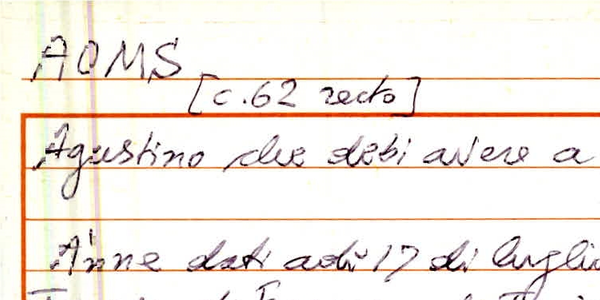 AOMS
[c.62 recto]
Agustino che debi avere a
Anne dati adì 17 di luglio